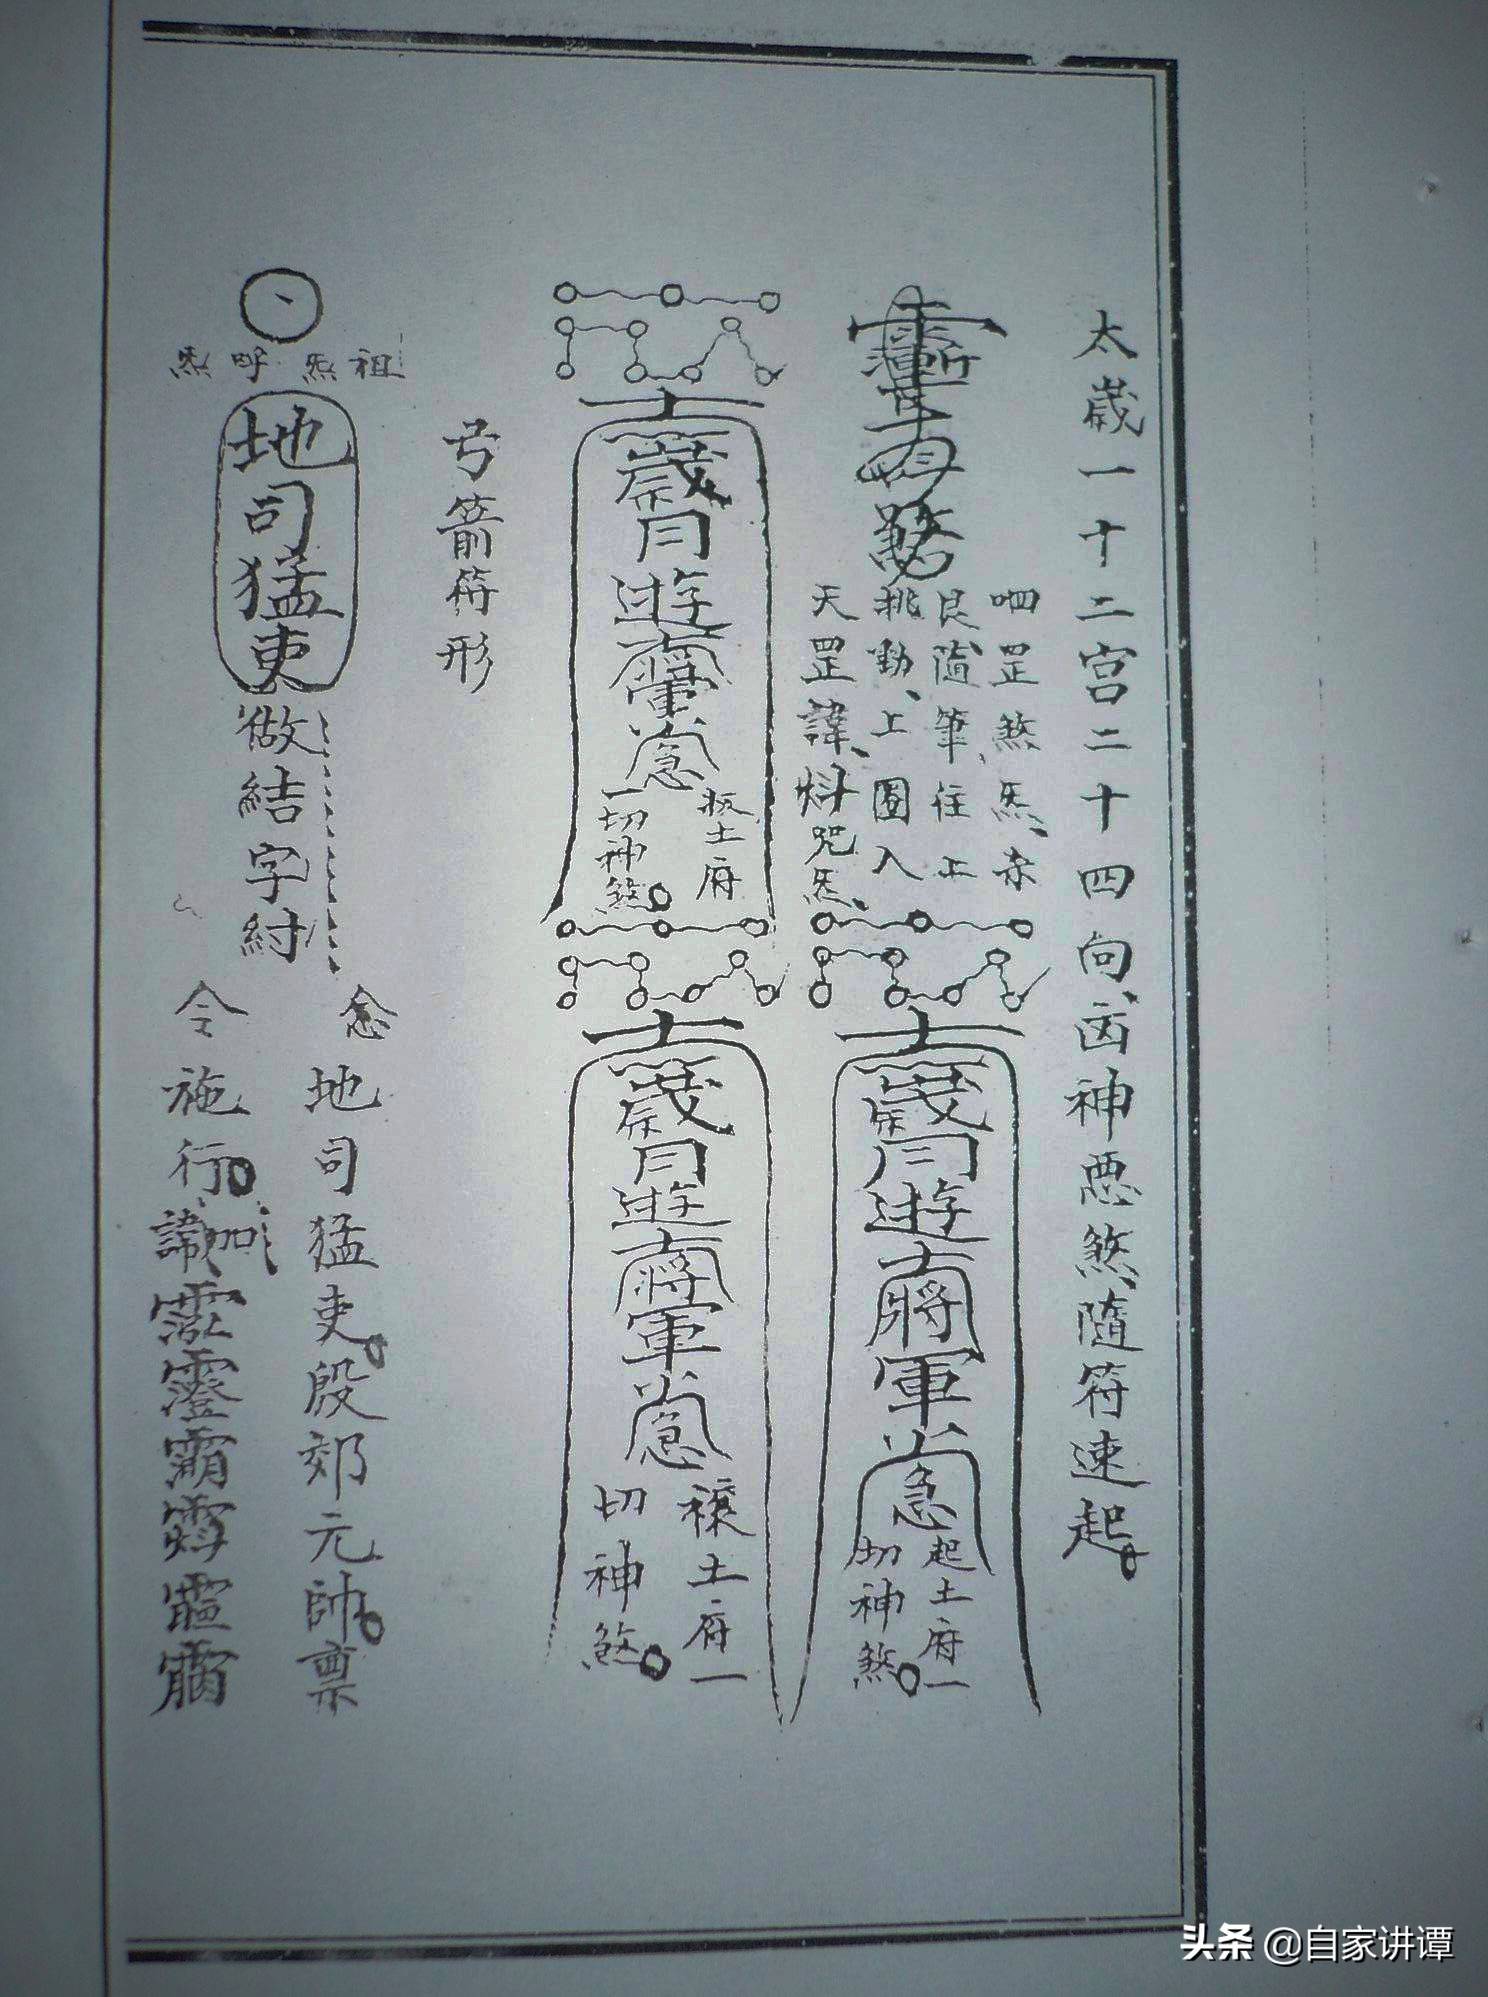 太歲一十二宮二十四向、凶神惡煞、隨符速起。
罡煞炁、赤
艮隨筆往上
挑動、上圈入
天罡諱、咒炁、
歲月遊將軍急
起土府一
切神煞。
歲月遊將軍急
扳土府
一切神煞。
歲月遊將軍急
禳土府一
切神煞。
弓箭符形
祖炁 呼炁
地司猛吏
做結字紂
念地司猛吏。殷郊元帥。票
令施行。加諱
头条 @自家讲谭